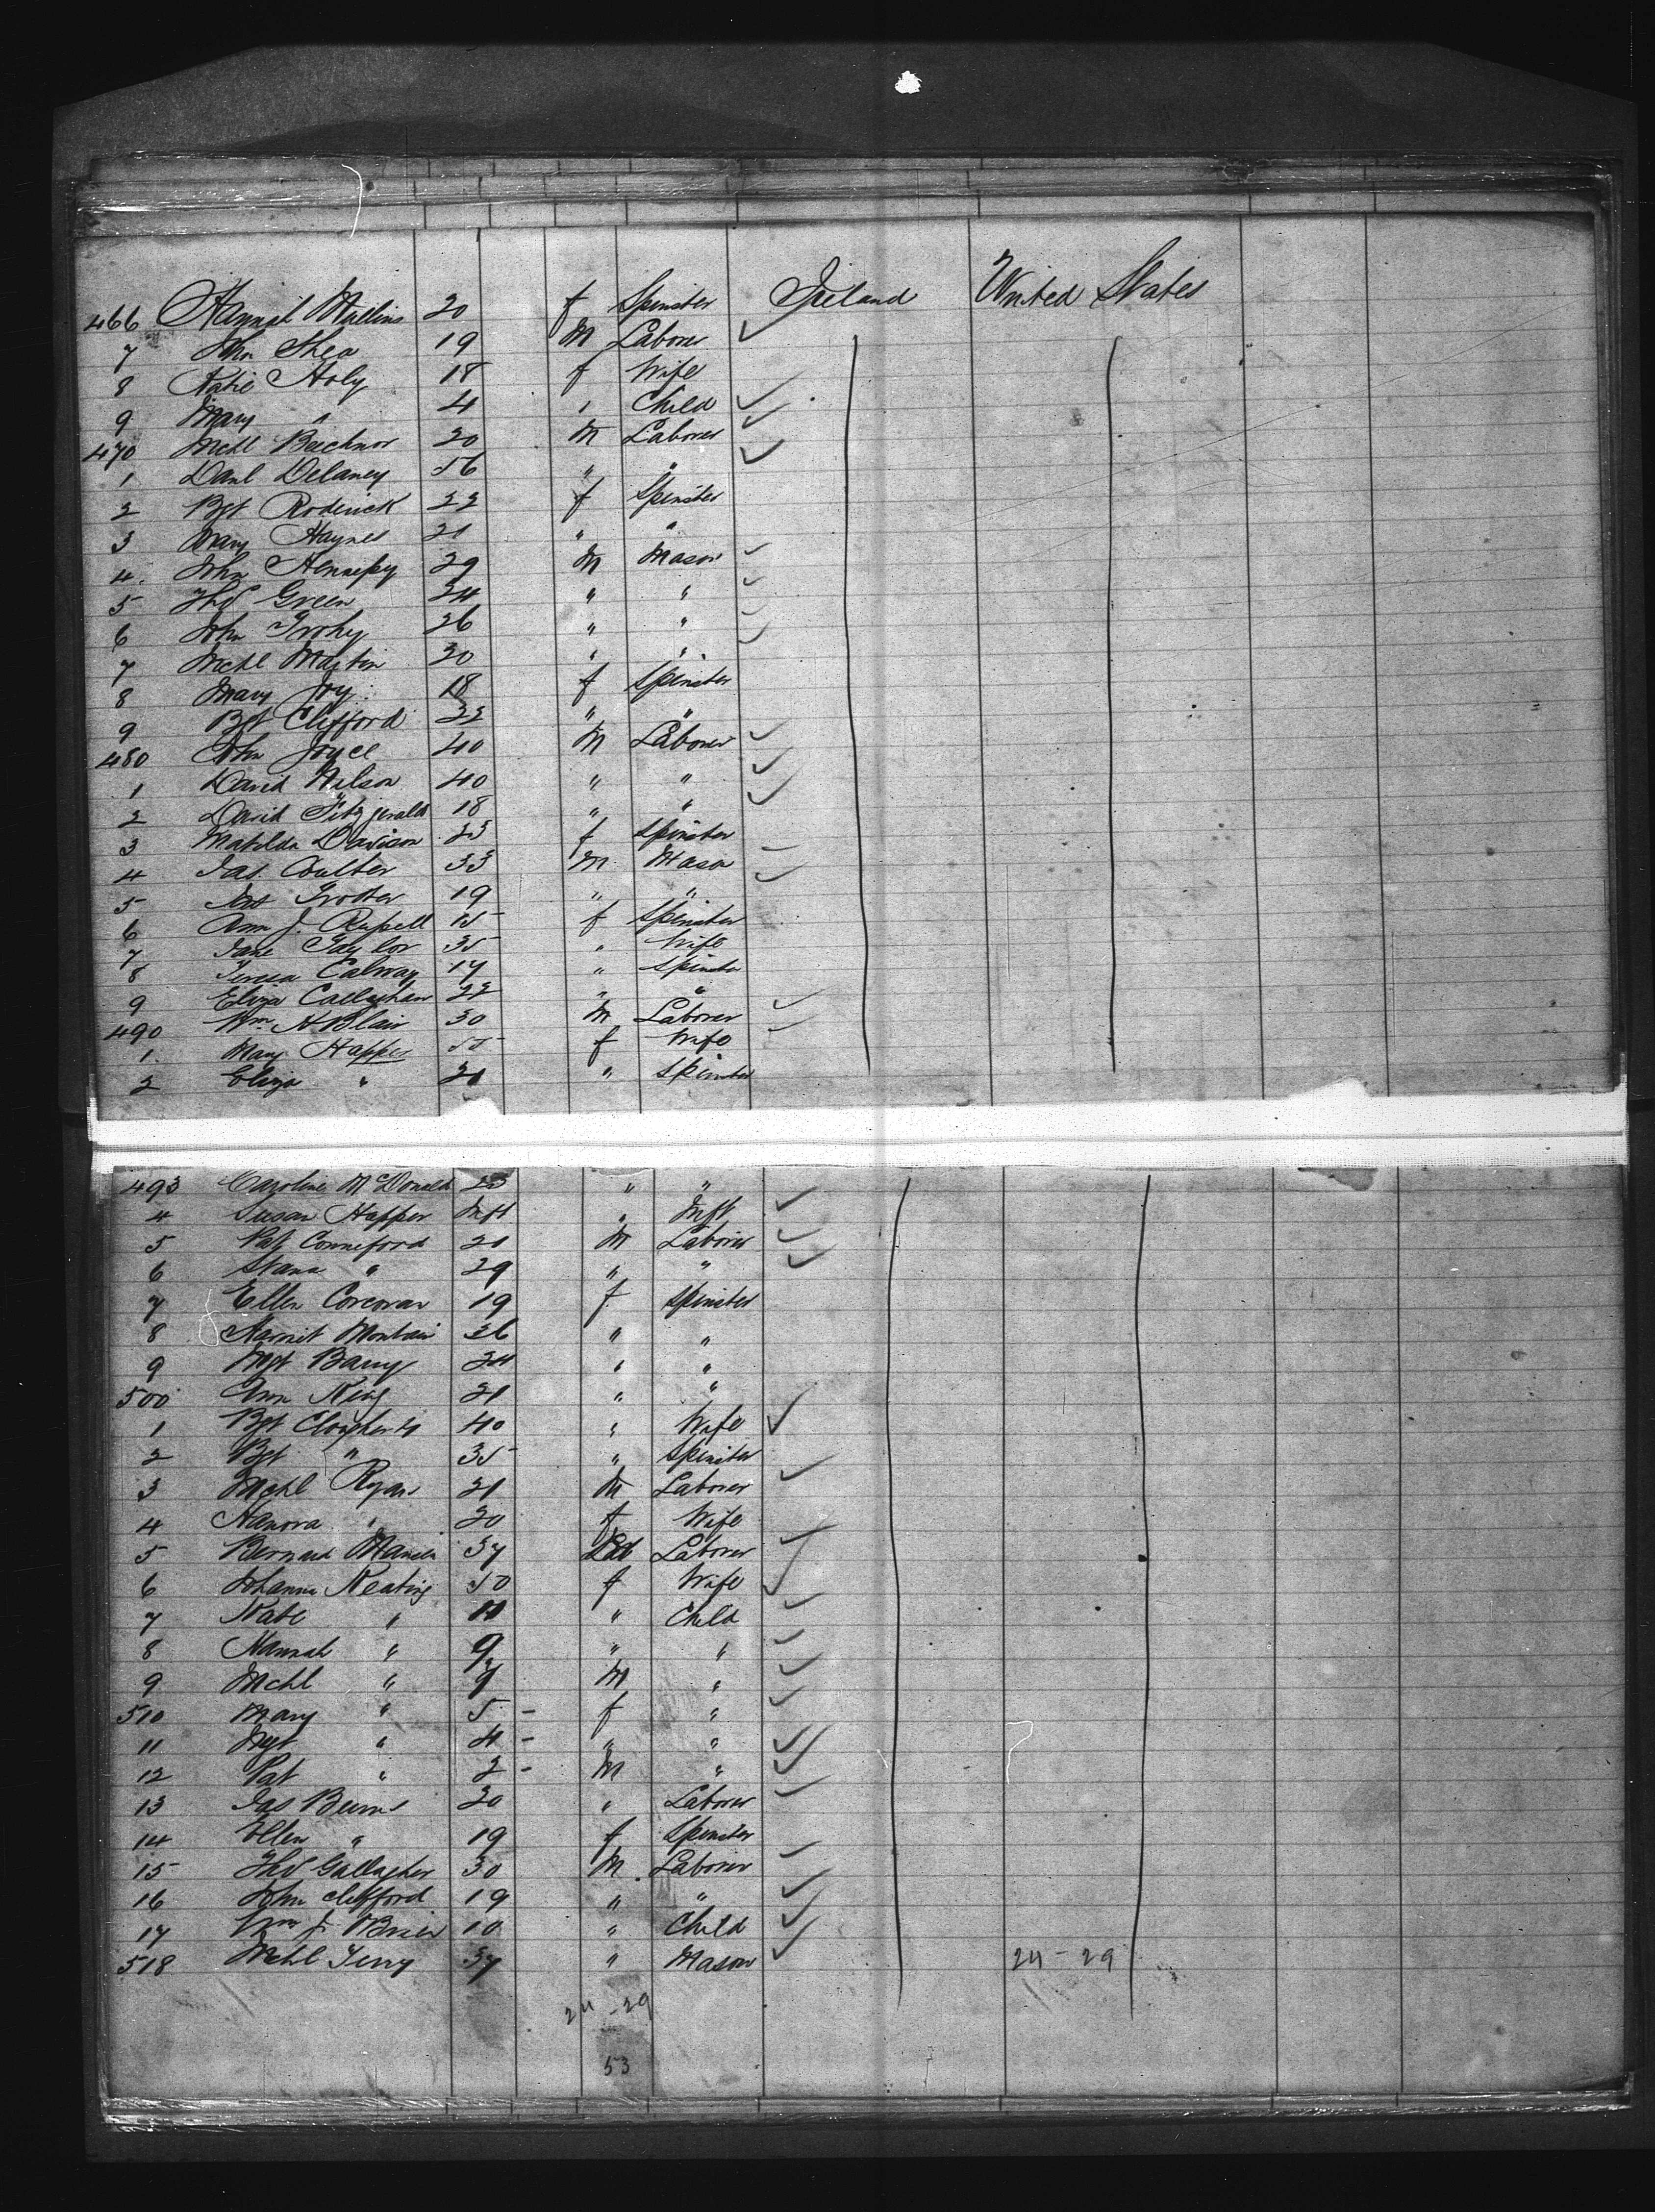 466 Hannah Mullins 20 f Spinster Ireland United States
7 John Shea 19 M Laborer
8 Katie Holy 18 f Wife
9 Mary " 4 " Child
470 Mchl 20 M Laborer
1 Danl Delaney 56 " "
2 Bgt Roderick 22 f Spinster
3 Mary Haynes 21 " "
4 John Hennessy 29 M Mason
5 Thos Green 24 " "
6 John 26 " "
7 Mchl Martin 20 " "
8 Mary Joy 18 f Spinster
9 Bgt Clifford 22 " "
480 John Joyce 40 M Laborer
1 David Wilson 40 " "
2 David Fitzgerald 18 " "
3 Matilda Davison 23 f Spinster
4 Jas. Coulter 33 M Mason
5 Trotter 19 " "
6 Ann J. Russell 15 f Spinster
7 Jane Taylor 35 " Wife
8 Teresa Calway 17 " Spinster
9 Eliza Callaghan 22 " "
490 Wm H Blair 30 M Laborer
1 Mary Happer 55 f Wife
2 Eliza " 21 " Spinster
493 Caroline McDonald 23 " "
4 Susan Happer Inft " Inft
5 Pat Conneford 21 M Laborer
6 " 29 " "
7 Ellen Corcoran 19 f Spinster
8 Harriet 26 " "
9 Mgt Barry 24 " "
500 Ann King 21 " "
1 Bgt 40 " Wife
2 Bgt " 35 " Spinster
3 Mchl Ryan 21 M Laborer
4 Hanora " 20 f Wife
5 Bernard 37 Laborer
6 Johanna Keating 50 f Wife
7 Kate " 11 " Child
8 Hannah " 9 " "
9 Mchl " 7 M "
510 Mary " 5 - f "
11 Mgt " 4 - " "
12 Pat " 2 - M "
13 Jas Burns 20 " Laborer
14 Ellen " 19 f Spinster
15 Thos Gallagher 30 M Laborer
16 John Clifford 19 " "
17 Wm J. OBrien 10 " Child
518 Mchl Terry 37 " Mason 24 - 29
24 - 29
53